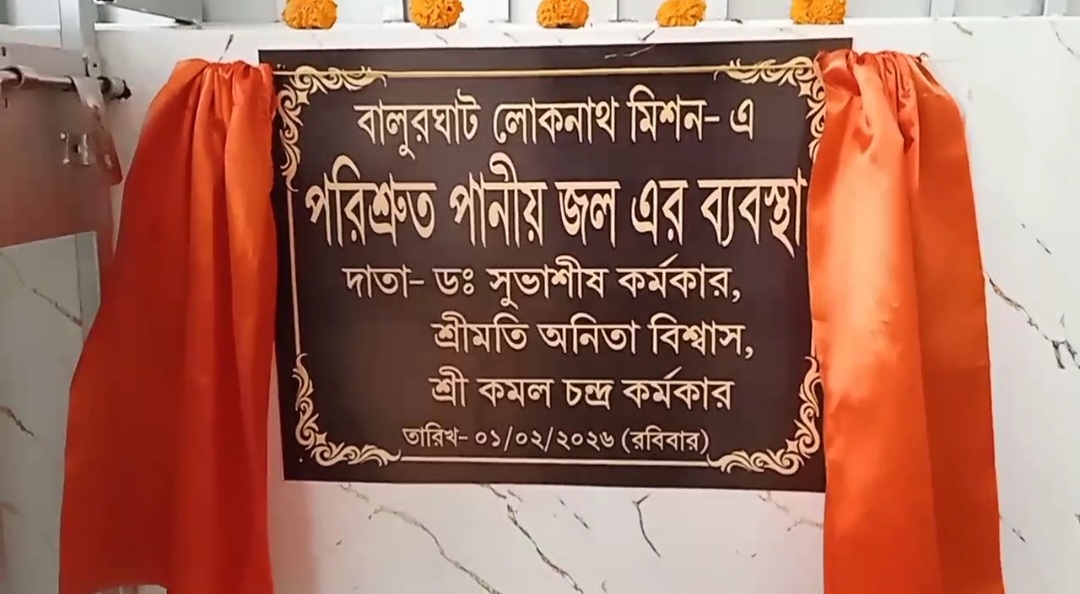 বালুরঘাট লোকনাথ মিশন- এ
পরিশ্রুত পানীয় জল এর ব্যবস্থা
দাতা- ডঃ সুভাশীষ কর্মকার,
শ্রীমতি অনিতা বিশ্বাস,
শ্রী কমল চন্দ্র কর্মকার
তারিখ- ০১/০২/২০২৬ (রবিবার)